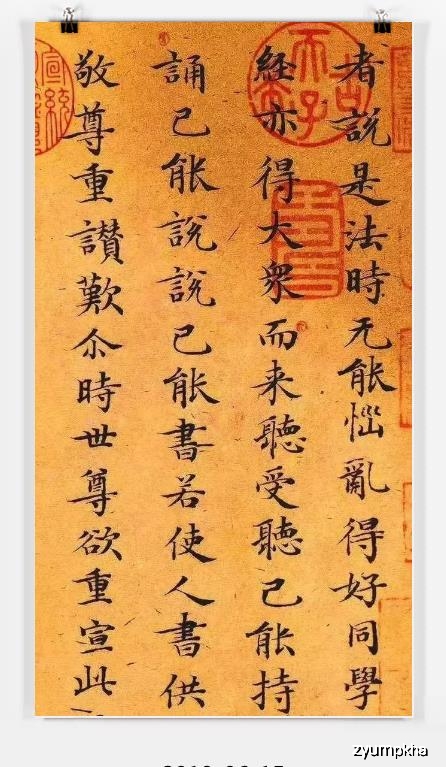 者說是法時无能惱亂得好同學
経亦得大衆而来聽受聽已能持
誦已能說說已能書若使人書供
敬尊重讃歎尒時世尊欲重宣此
zyumpkha